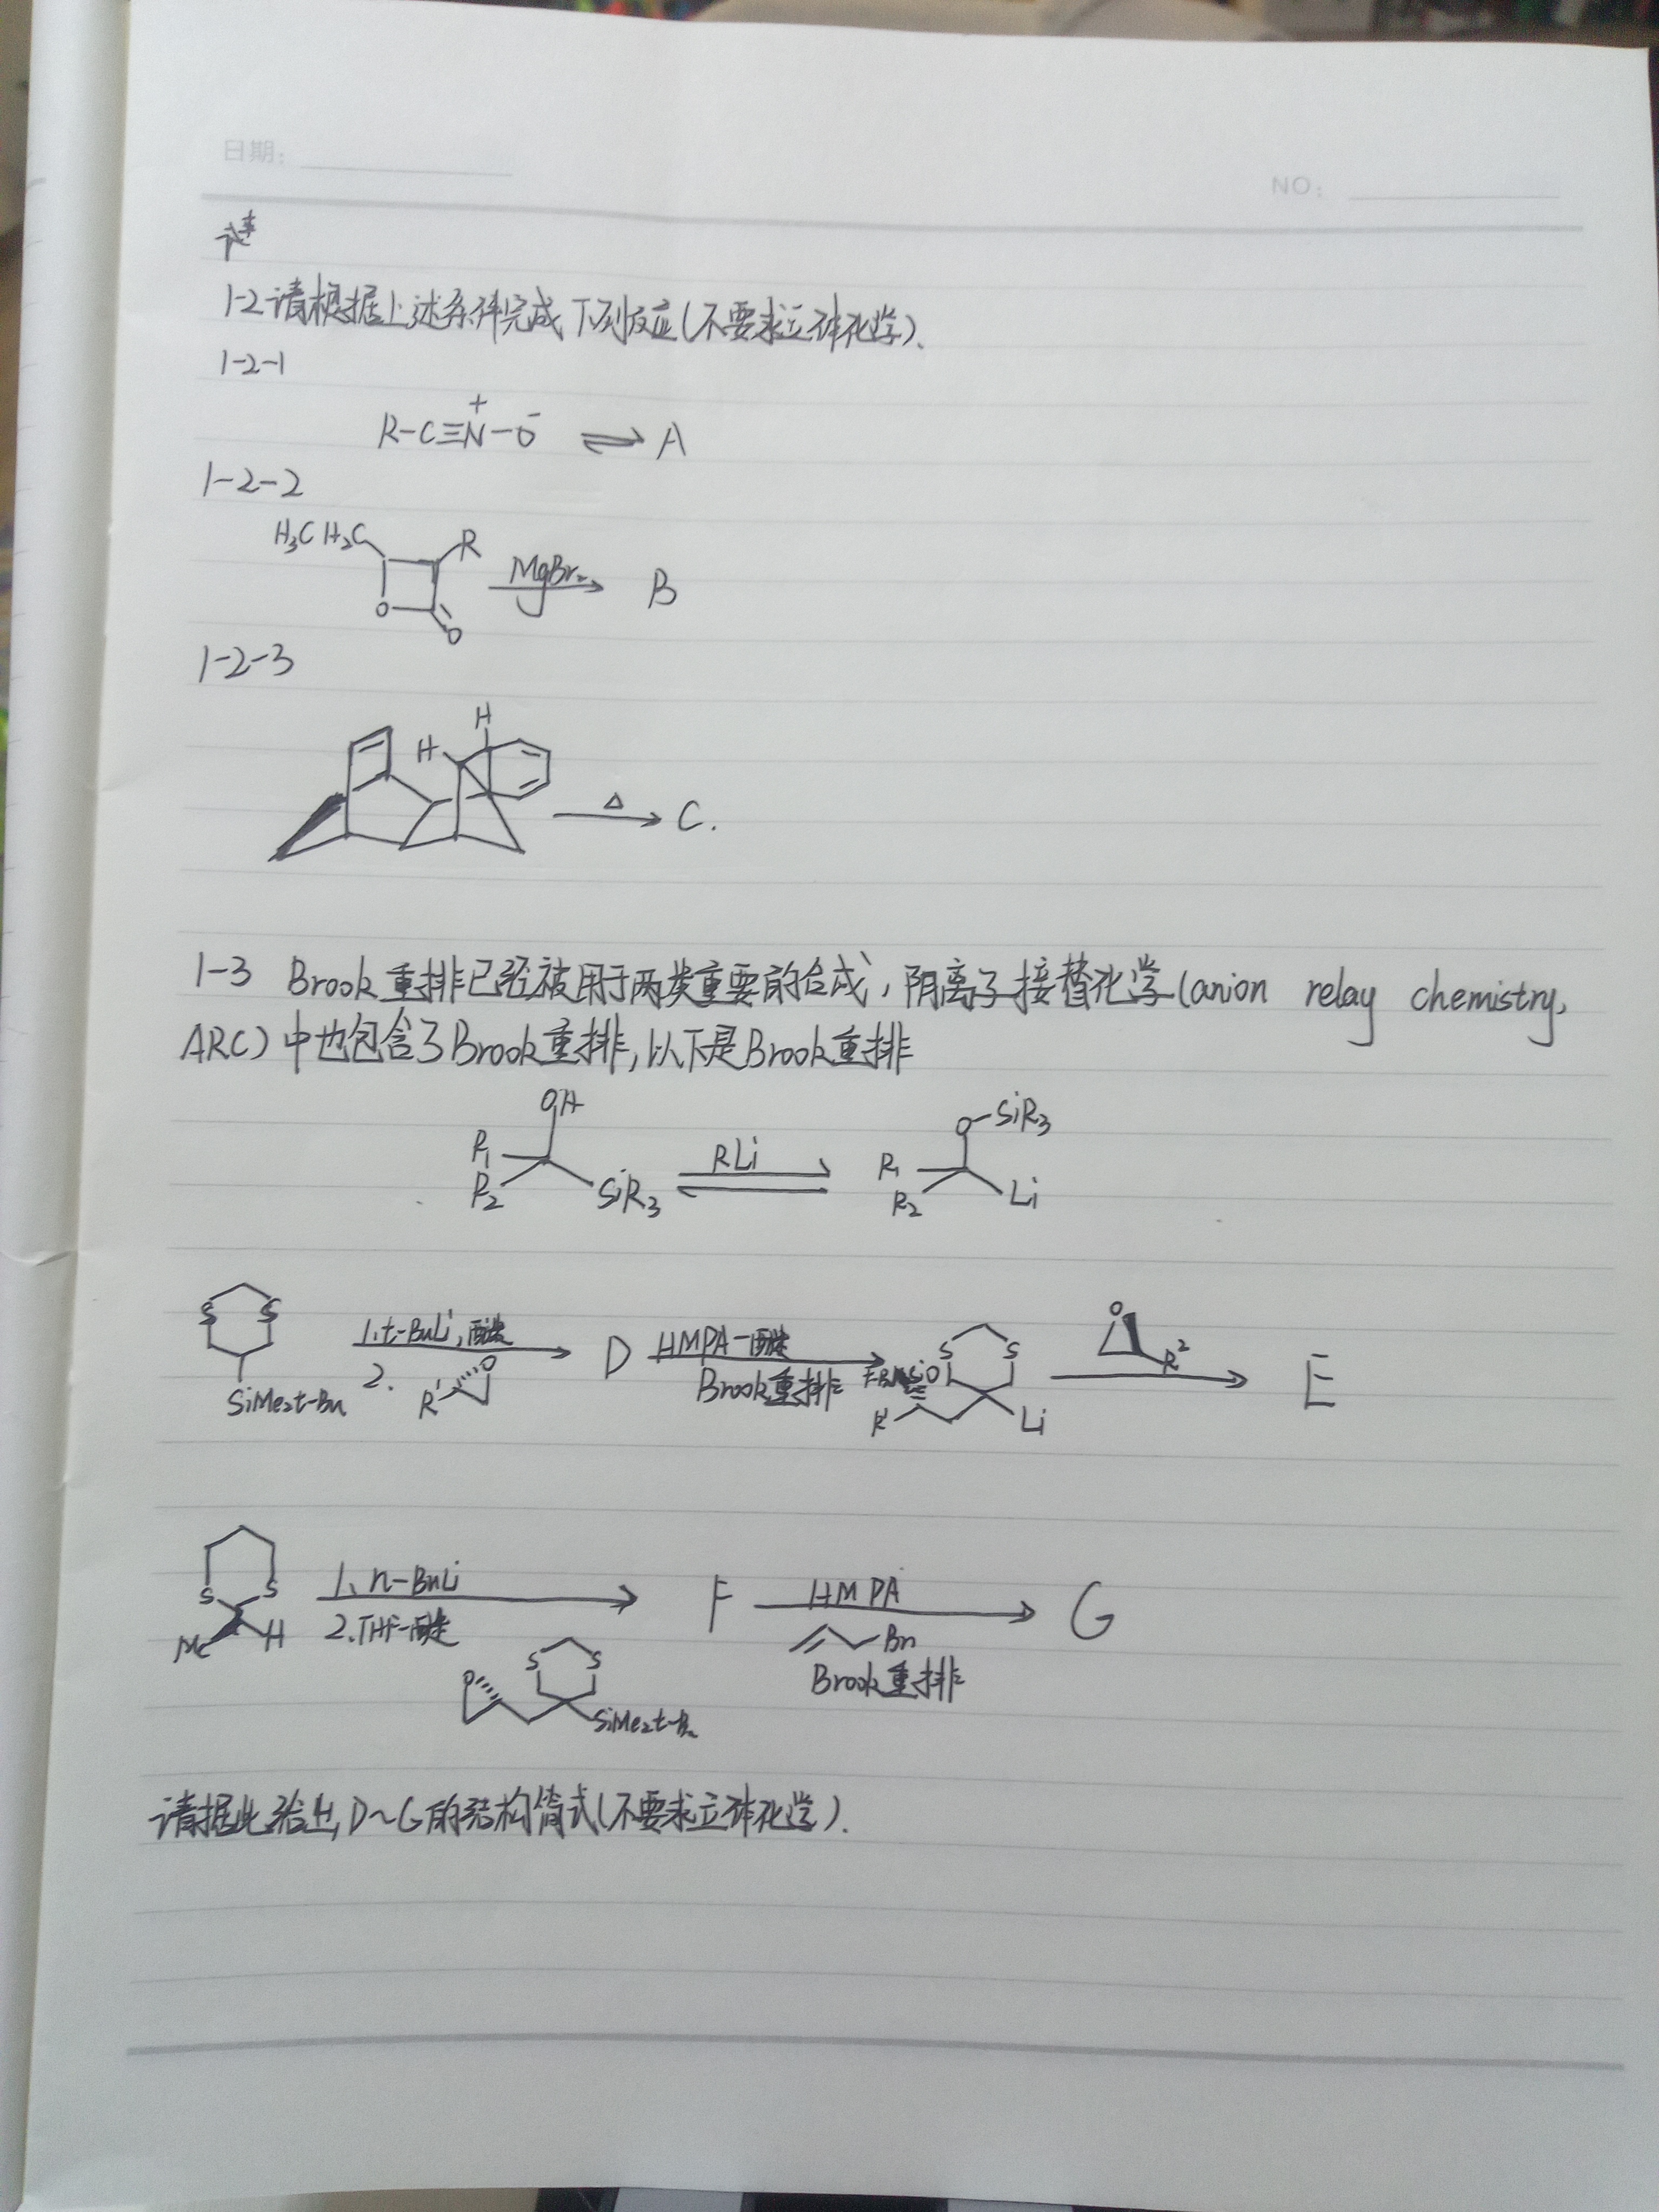 日期:
NO:
1-2 请根据上述条件完成下列反应(不要求立体化学).
1-2-1
R-C≡N⁺-O⁻ ⇌ A
1-2-2
H₃CH₂C R MgBr₂ B
O O
1-2-3
H H Δ C.
1-3 Brook重排已经被用于两类重要的合成,阴离子接替化学(anion relay chemistry,
ARC)中也包含了Brook重排,以下是Brook重排
OH R₁ R₂ SiR₃ RLi O-SiR₃ R₁ R₂ Li
S S SiMe₂t-Bu 1.t-BuLi,醚 2. R¹ O D HMPA-醚 Brook重排 S S R¹ Li O R² E
S S Me H 1、n-BuLi 2.THF-醚 F HMPA Br Brook重排 G
O S S SiMe₂t-Bu
请据此给出D~G的结构简式(不要求立体化学).